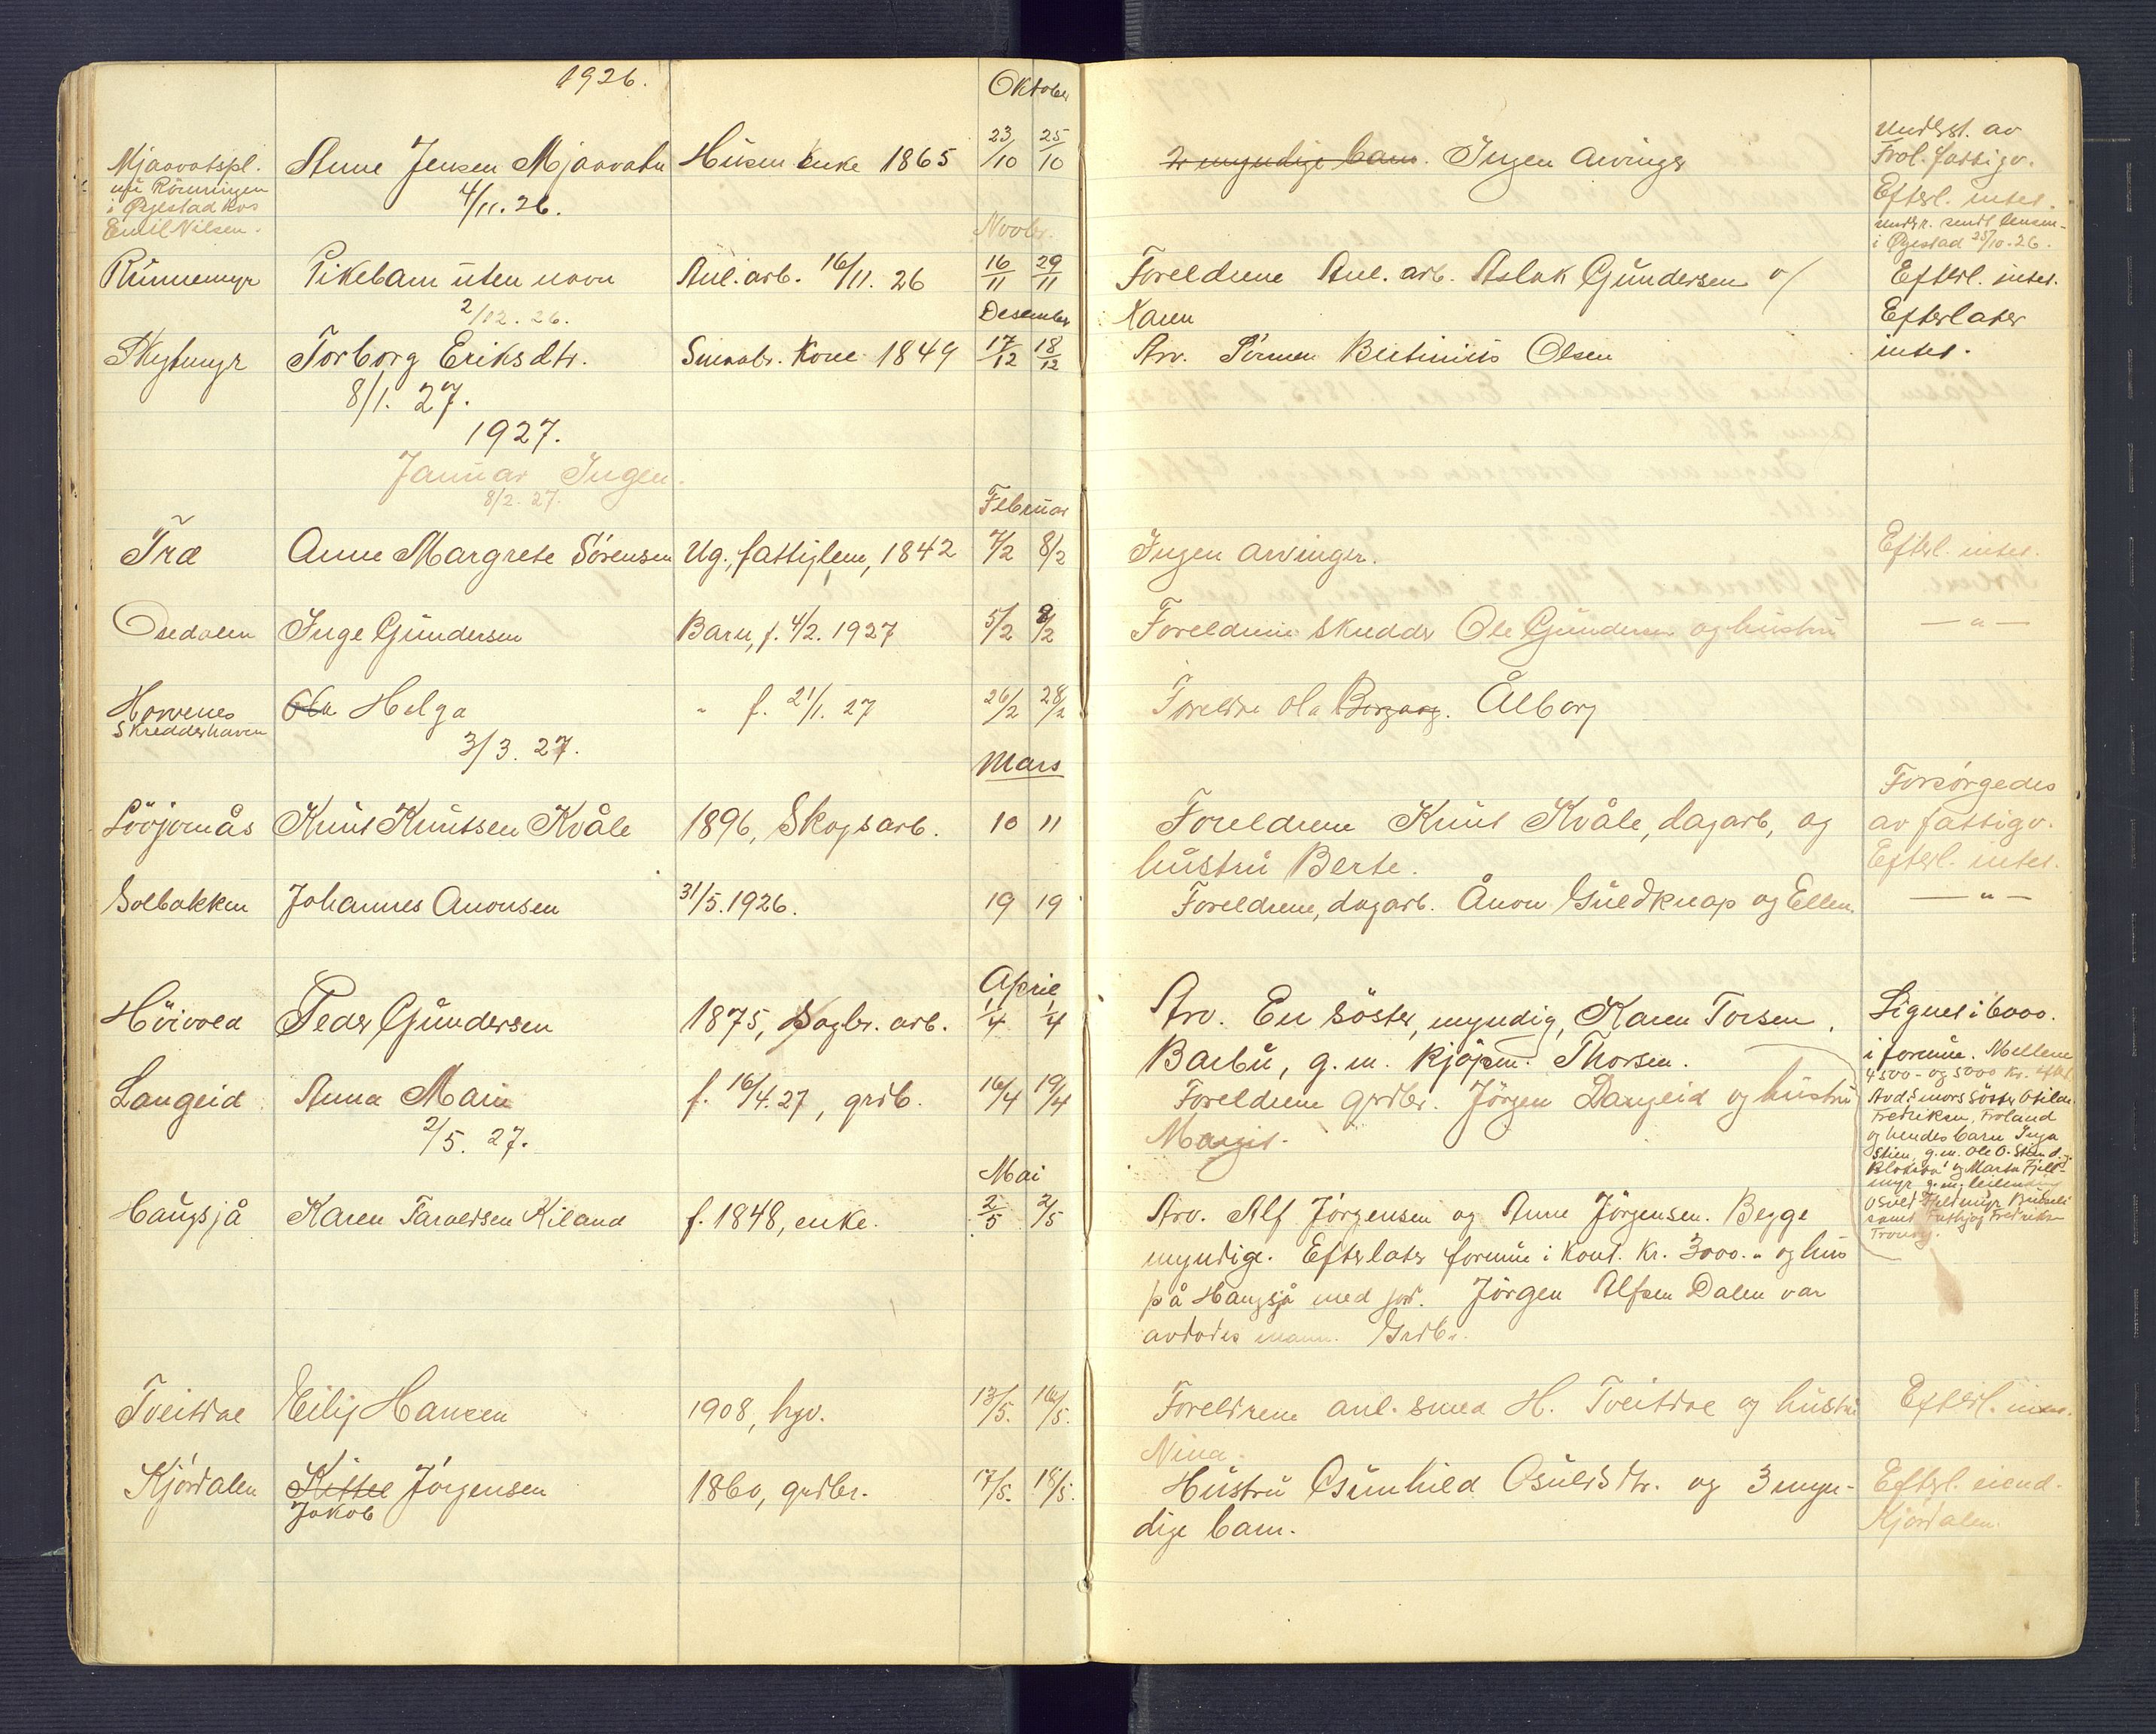 1926.
Oktober
Mjaavatspl.
Anne Jensen Mjaavatn
Husm. Enke 1865
23/10 25/10
2 myndige barn. Ingen arvinger
Underst. av
Frol. fattigv.
i Øyestad hos
Emil Nilsen.
4/11. 26.
Efterl. intet.
i Øyestad 25/10-26.
Novbr.
Rünnemyr
Pikebarn uten navn
Anl. arb. 16/11. 26
16/11 29/11
Foreldrene Anl. arb. Aslak Gundersen o/
Karen
Efterl. intet.
2/12. 26.
Desember
Torborg Eriksdtr.
Kone 1849
17/12 18/12
Arv. Olsen
Efterlater
intet.
8/1. 27.
1927.
Januar Ingen.
8/2. 27.
Februar
Træ
Anne Margrete Sörensen
Ug., fattiglem, 1842
7/2 8/2
Ingen arvinger.
Efterl. intet.
Osedalen
Inge Gundersen
Barn, f. 4/2. 1927
5/2 8/2
Foreldrene Skredder Ole Gundersen og hustru
— " —
Skredderhaven
Ola Helga
" f. 21/1. 27
26/2 28/2
Foreldre Ola Borgarg. Ålborg
3/3. 27.
Mars
Lövjomås
Knut Knutsen Kvåle
1896, Skogsarb.
10 11
Foreldrene Knut Kvåle, dagarb, og
hustru Berte.
Forsörgedes
av fattigv.
Efterl. intet.
Solbakken
Johannes Anonsen
31/5. 1926.
19 19
Foreldrene, dagarb. Ånon Guldknap og Ellen.
— " —
April
Höivold
Peder Gundersen
1875, Sagbr. arb.
1/4 1/4
Arv. En söster, myndig, Karen Torsen,
Barbu, g. m. kjöpm. Thorsen.
Lignet i 6000.
i formue. Mellem
4500- og 5000 kr.
Langeid
Anna Marie
f. 16/4. 27, grdb.
16/4 19/4
Foreldrene grdbr. Jörgen Langeid og hustru
Margit.
Avd. s mors söster
Fredriksen, Froland
og hendes barn Inga
2/5. 27.
Mai
Haugsjå
Karen Taraldsen Kiland
f. 1848, enke.
2/5 2/5
Arv. Alf Jörgensen og Anne Jörgensen. Begge
myndige. Efterlater formue i kont. kr. 3000.- og hus
på Haugsjå med jord. Jörgen Alfsen Dalen var
avdödes mann. Grdbr.
Tveitdal
Eilif Hansen
1908, hgv.
13/5. 16/5.
Foreldrene anl. smed H. Tveitdal og hustru
Nina.
Efterl. intet.
Kjördalen
Kittel Jörgensen
Jakob
1860, grdbr.
17/5. 18/5.
Hustru Gunhild Osulsdtr. og 3 myn-
dige barn.
Efterl. eiend.
Kjördalen.